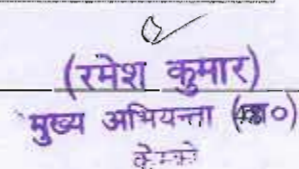 (रमेश कुमार)
मुख्य अभियन्ता
केस्को